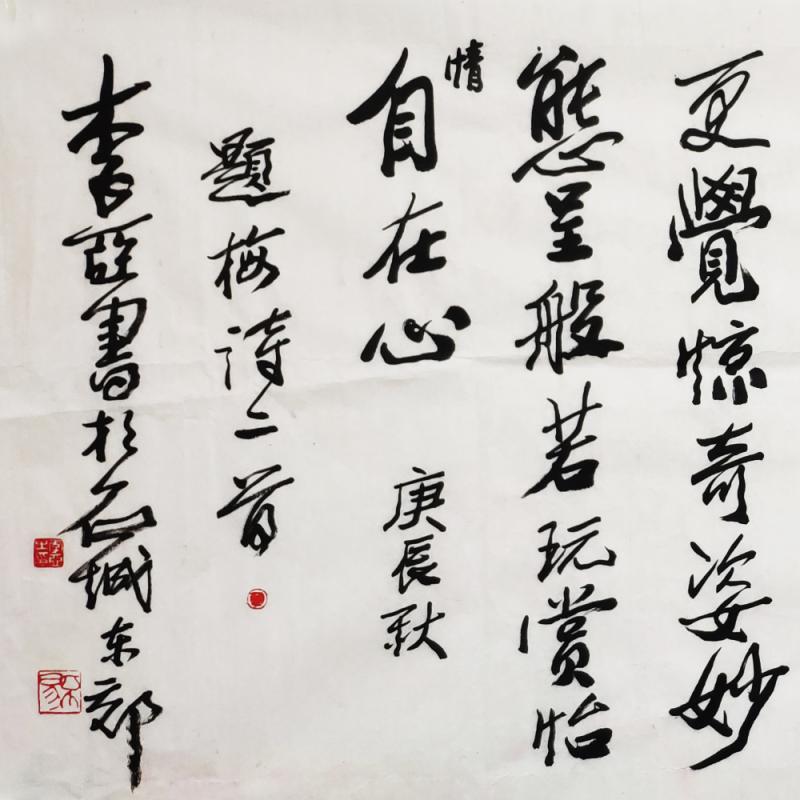 更覺惊奇姿妙
態呈般若玩赏怡
情自在心
庚辰秋
題梅詩二首
李 書於石城东郊